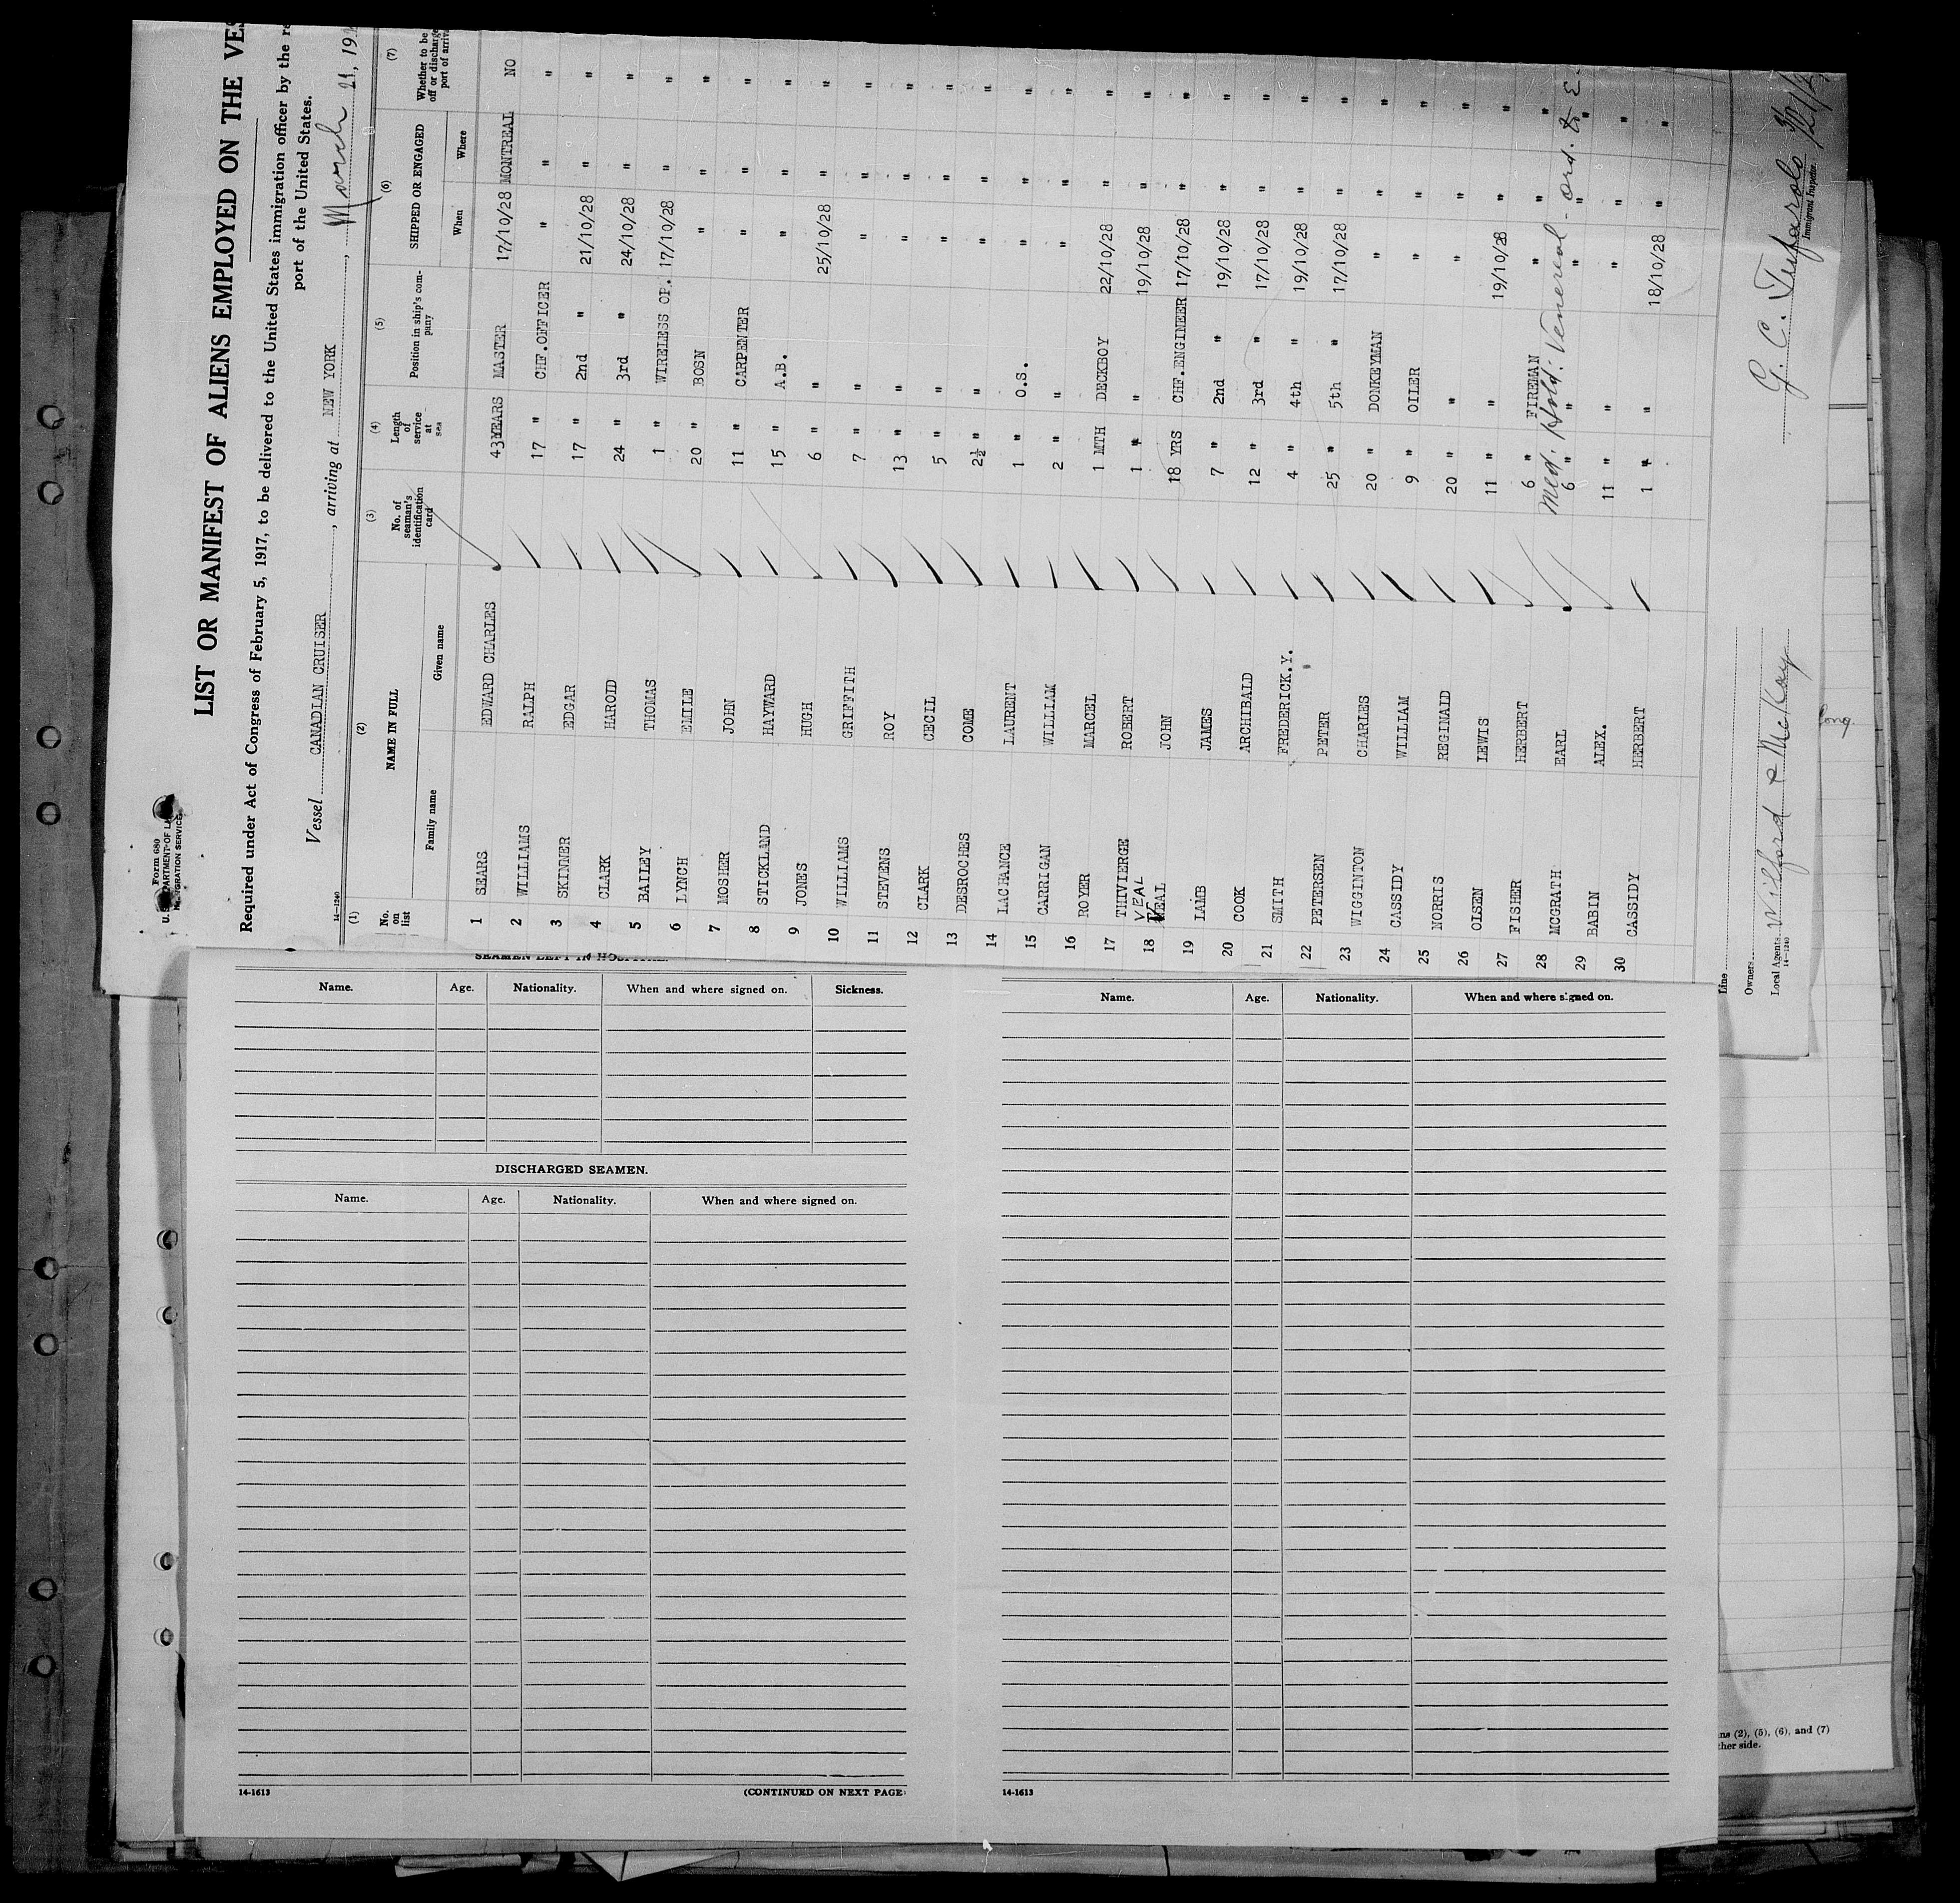 Form 680
U. S. DEPARTMENT OF LA
IMMIGRATION SERVICE
LIST OR MANIFEST OF ALIENS EMPLOYED ON THE VES
Required under Act of Congress of February 5, 1917, to be delivered to the United States immigration officer by the
port of the United States.
Vessel CANADIAN CRUISER, arriving at NEW YORK, March 21, 19
14-1240
(1) (2) (3) (4) (5) (6) (7)
No. on list NAME IN FULL No. of seaman's identification card Length of service at sea Position in ship's company SHIPPED OR ENGAGED Whether to be off or discharge port of arriv
Family name Given name When Where
1 SEARS EDWARD CHARLES 43YEARS MASTER 17/10/28 MONTREAL NO
2 WILLIAMS RALPH 17 " CHF.OFFICER " " "
3 SKINNER EDGAR 17 " 2nd " 21/10/28 " "
4 CLARK HAROLD 24 " 3rd " 24/10/28 " "
5 BAILEY THOMAS 1 " WIRELESS OP. 17/10/28 " "
6 LYNCH EMILE 20 " BOSN " " "
7 MOSHER JOHN 11 " CARPENTER " " "
8 STICKLAND HAYWARD 15 " A.B. " " "
9 JONES HUGH 6 " " 25/10/28 " "
10 WILLIAMS GRIFFITH 7 " " " " "
11 STEVENS ROY 13 " " " " "
12 CLARK CECIL 5 " " " " "
13 DESROCHES COME 2½ " " " " "
14 LACHANCE LAURENT 1 " O.S. " " "
15 CARRIGAN WILLIAM 2 " " " " "
16 ROYER MARCEL 1 MTH DECKBOY 22/10/28 " "
17 THIVIERGE ROBERT 1 " " 19/10/28 " "
VEAL
18 VEAL JOHN 18 YRS CHF.ENGINEER 17/10/28 " "
19 LAMB JAMES 7 " 2nd " 19/10/28 " "
20 COOK ARCHIBALD 12 " 3rd " 17/10/28 " "
21 SMITH FREDERICK.Y. 4 " 4th " 19/10/28 " "
22 PETERSEN PETER 25 " 5th " 17/10/28 " "
23 WIGGINTON CHARLES 20 " DONKEYMAN " " "
24 CASSIDY WILLIAM 9 " OILER " " "
25 NORRIS REGINALD 20 " " " " "
26 OLSEN LEWIS 11 " " 19/10/28 " "
27 FISHER HERBERT 6 " FIREMAN " " "
Med. Hold: Venereal - ord. to E.
28 MCGRATH EARL 6 " " " " "
29 BABIN ALEX. 11 " " " " "
30 CASSIDY HERBERT 1 " " 18/10/28 " "
Line
Owners
Local Agents Wilford & McKay
14-1240
G. C. Tufarolo 3/21/
Immigrant Inspector.
SEAMEN LEFT IN HOSPITAL.
Name. Age. Nationality. When and where signed on. Sickness.
DISCHARGED SEAMEN.
Name. Age. Nationality. When and where signed on.
14-1613
(CONTINUED ON NEXT PAGE
Name. Age. Nationality. When and where signed on.
14-1613
ns (2), (5), (6), and (7)
ther side.